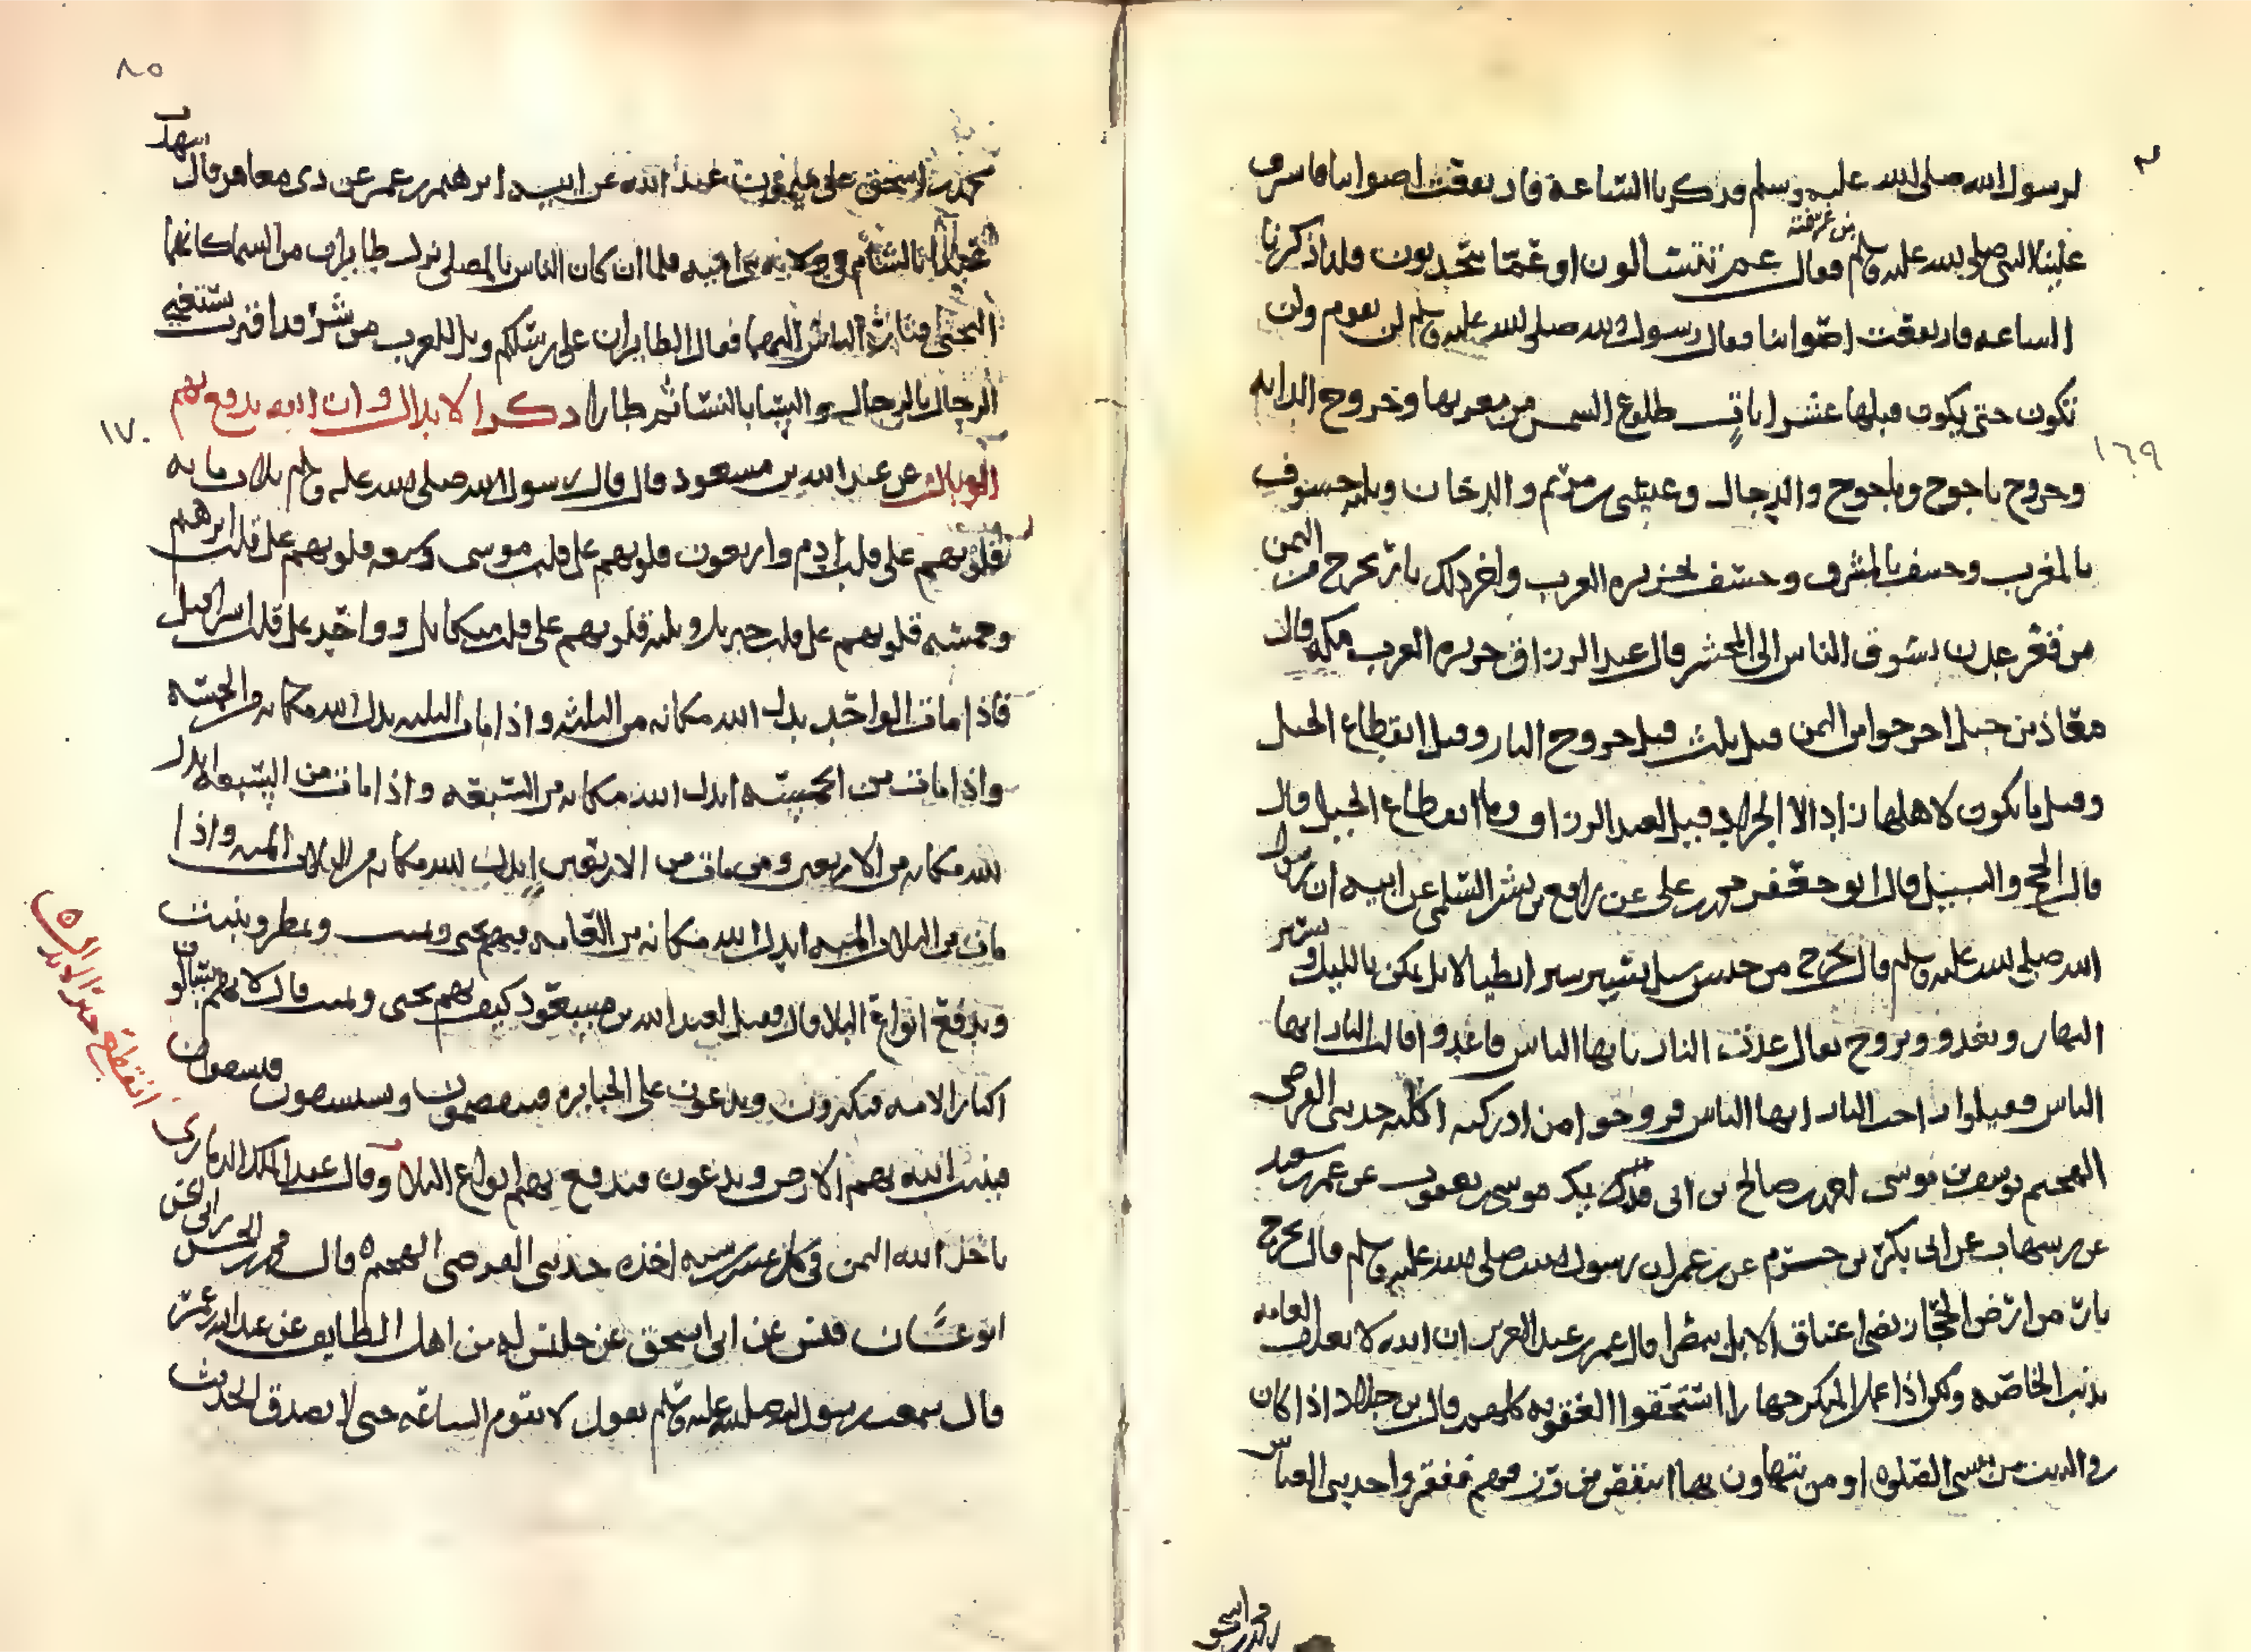 لرسول الله صلى الله عليه وسلم فذكرنا الساعة فارتفعت اصواتنا فاشرف
علينا النبي صلى الله عليه وسلم من غرفته فقال عم تتسالون او عما تتحدثون قلنا ذكرنا
الساعه فارتفعت اصواتنا فقال رسول الله صلى الله عليه وسلم لن تقوم ولن
تكون حتى يكون قبلها عشر ايات طلوع الشمس من مغربها وخروج الدابه
١٦٩
وخروج ياجوج وماجوج والدجال وعيسى بن مريم والدخان وثلثه خسوف
بالمغرب وخسف بالمشرق وخسف بجزيره العرب واخر ذلك نار تخرج من اليمن
من قعر عدن تسوق الناس الى المحشر قال عبد الرزاق جزيره العرب مكه قال
معاذ بن جبل اخرجوا من اليمن قبل ثلث قبل خروج النار وقبل انقطاع الحبل
وقبل ما يكون لاهلها زاد الا الجراد قيل لعبد الرزاق وما انقطاع الحبل قال
قال الحج والسبيل قال ابو جعفر محمد بن علي عن رافع بن بشر السلمي عن ابيه ان رسول
الله صلى الله عليه وسلم قال تخرج من حبس سيل تسير سير ابطيا الابل تكمن بالليل وتسير
النهار وتغدو وتروح يقال غدت النار يا ايها الناس فاغدوا قالت النار ايها
الناس فقيلوا راحت النار ايها الناس فروحوا من ادركته اكلته حدثني القرضي
الهجيم يوسف بن موسى احمد بن صالح بن ابي فديك موسى بن يعقوب عن عمر بن سعيد
عن بن شهاب عن ابي بكر بن حزم عن بن عمر ان رسول الله صلى الله عليه وسلم قال تخرج
نار من ارض الحجاز تضي اعناق الابل ببصرا قال عمر بن عبد العزيز ان الله لا يعذب العامه
بذنب الخاصه ولكن اذا عمل المنكر جهارا استحقوا العقوبه كلهم قال بن جلاد اذا كان
في البيت من نسى الصلوه او من تتهاون بها انتقص من رزقهم ففقروا حدثني العباس
٨٥
محمد بن اسحق علي بن ميمون عبد الله عن ابيه ابرهيم بن عمر عن ذي معاهر قال
بالشام فلما ان كان الناس بالمصلى نزل طايران من السما كانهما
البختي الناس اليهما فقال الطايران على رسلكم ويل للعرب من شر قد اقترب ستغني
الرجال بالرجال والنسا بالنسا ثم طارا ذكر الابدال وان الله يدفع بهم
١٧٠
عن عبد الله بن مسعود قال قال رسول الله صلى الله عليه وسلم ثلاث مايه
قلوبهم على قلب ادم واربعون قلوبهم على قلب موسى وسبعه قلوبهم على قلب ابرهيم
وخمسه قلوبهم على قلب جبريل وثلثه قلوبهم على قلب ميكايل وواحد على قلب اسرافيل
فاذا مات الواحد بدل الله مكانه من الثلثه واذا مات من الثلثه بدل الله مكانه من الخمسه
واذا مات من الخمسه ابدل الله مكانه من السبعه واذا مات من السبعه ابدل
الله مكانه من الاربعين ومن مات من الاربعين ابدل الله مكانه من الثلاث المئه واذا
مات من الثلاث المئه ابدل الله مكانه من العامه فبهم يحيى ويميت ويمطر وينبت
ويدفع انواع البلا قال فقيل لعبد الله بن مسعود كيف بهم يحيى ويميت قال لانهم يسالون
اكثار الامه فيكثرون ويدعون على الجبابره فيقصمون ويستسقون فيسقون
فينبت الله بهم الارض ويدعون فيدفع بهم انواع البلا وقال عبد الملك الذماري
انقطع خبر الابدال
ياخذ الله اليمن في كل عشر سنه اخذه حدثني القرضي الهجيم قال محمد بن الحسن بن ابي الحسن
ابو غسان قيس عن ابي اسحق عن جليس له من اهل الطايف عن عبد الله بن عمر
قال سمعت رسول الله صلى الله عليه وسلم يقول لا تقوم الساعه حتى لا يصدق الحديث